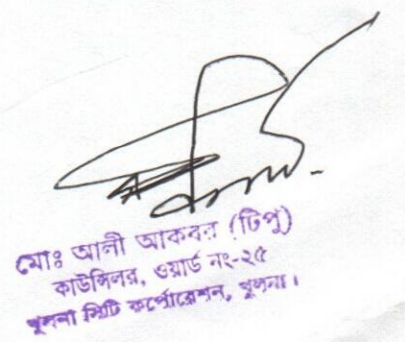 মোঃ আলী আকবর (টিপু)
কাউন্সিলর, ওয়ার্ড নং-২৫
খুলনা সিটি কর্পোরেশন, খুলনা।